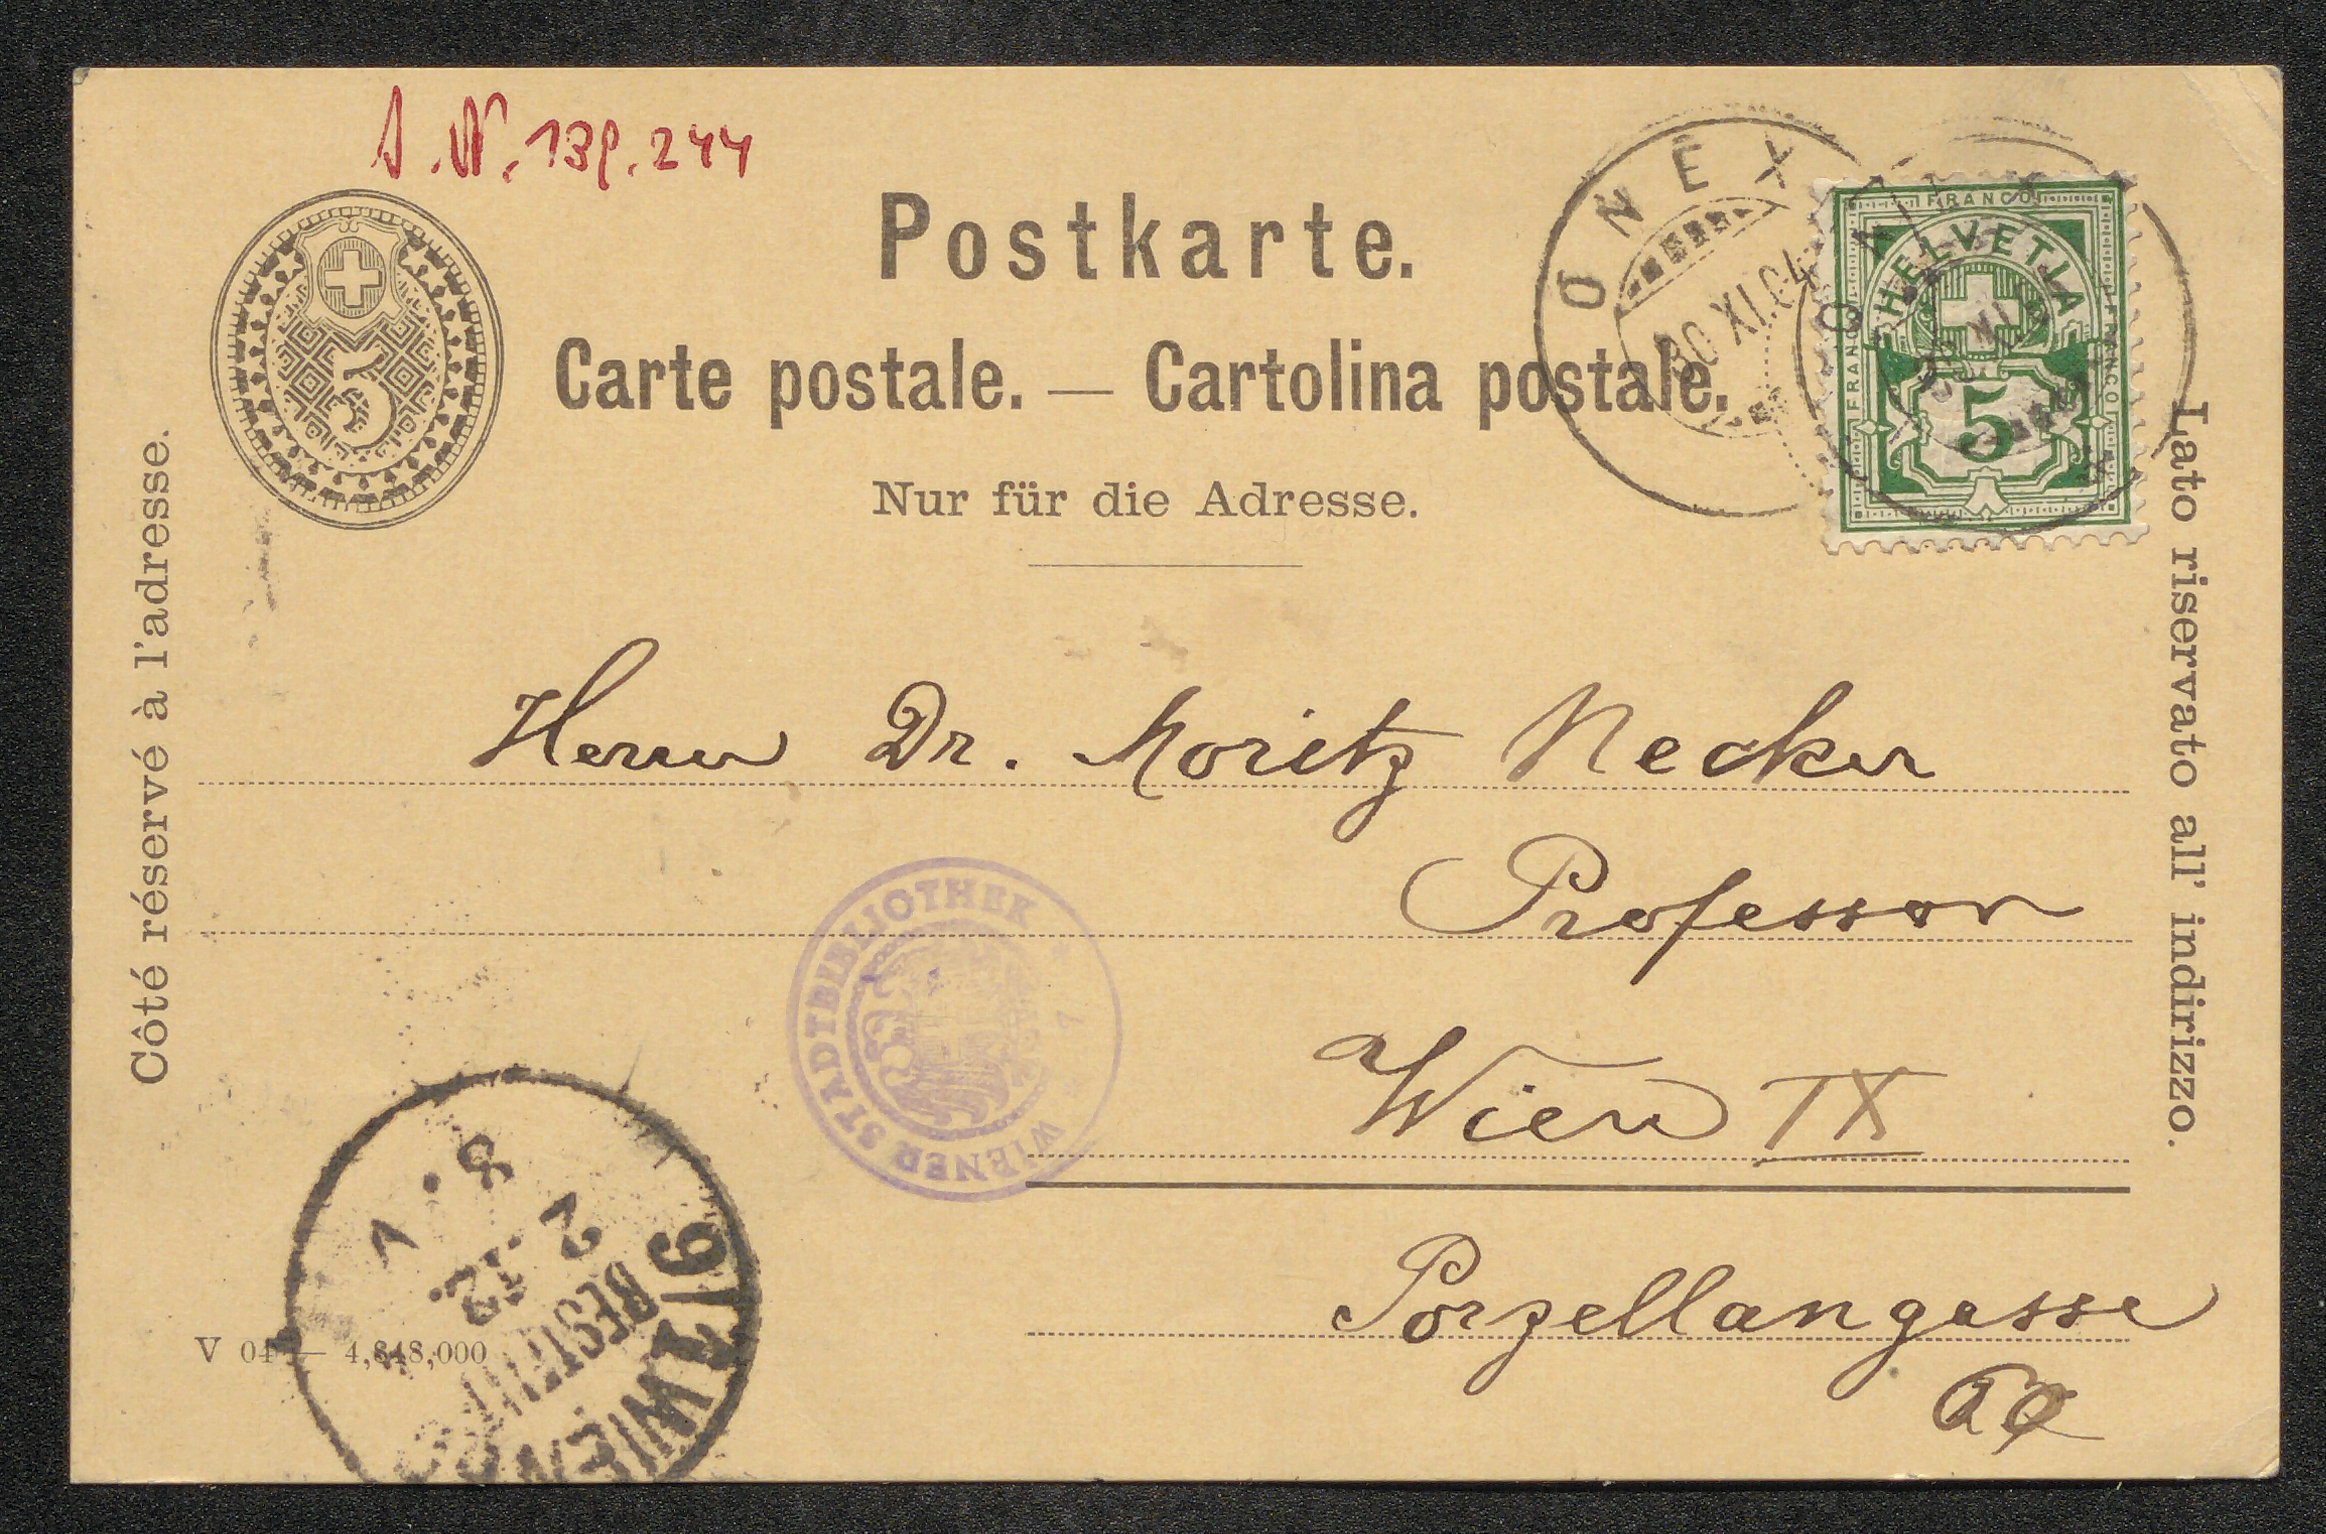 I.N. 139.244
5
Postkarte.
Carte postale. — Cartolina postale.
Nur für die Adresse.
Côté réservé à l'adresse.
Lato riservato all' indirizzo.
ONEX
30 XI.04
FRANCO
FRANCO
FRANCO
HELVETIA
5
Herrn Dr. Moritz Necker
Professor
WIENER STADTBIBLIOTHEK
Wien IX
Porzellangasse
9/1 WIEN
BESTELLT
2.12
8.V
V 04 — 4,848,000